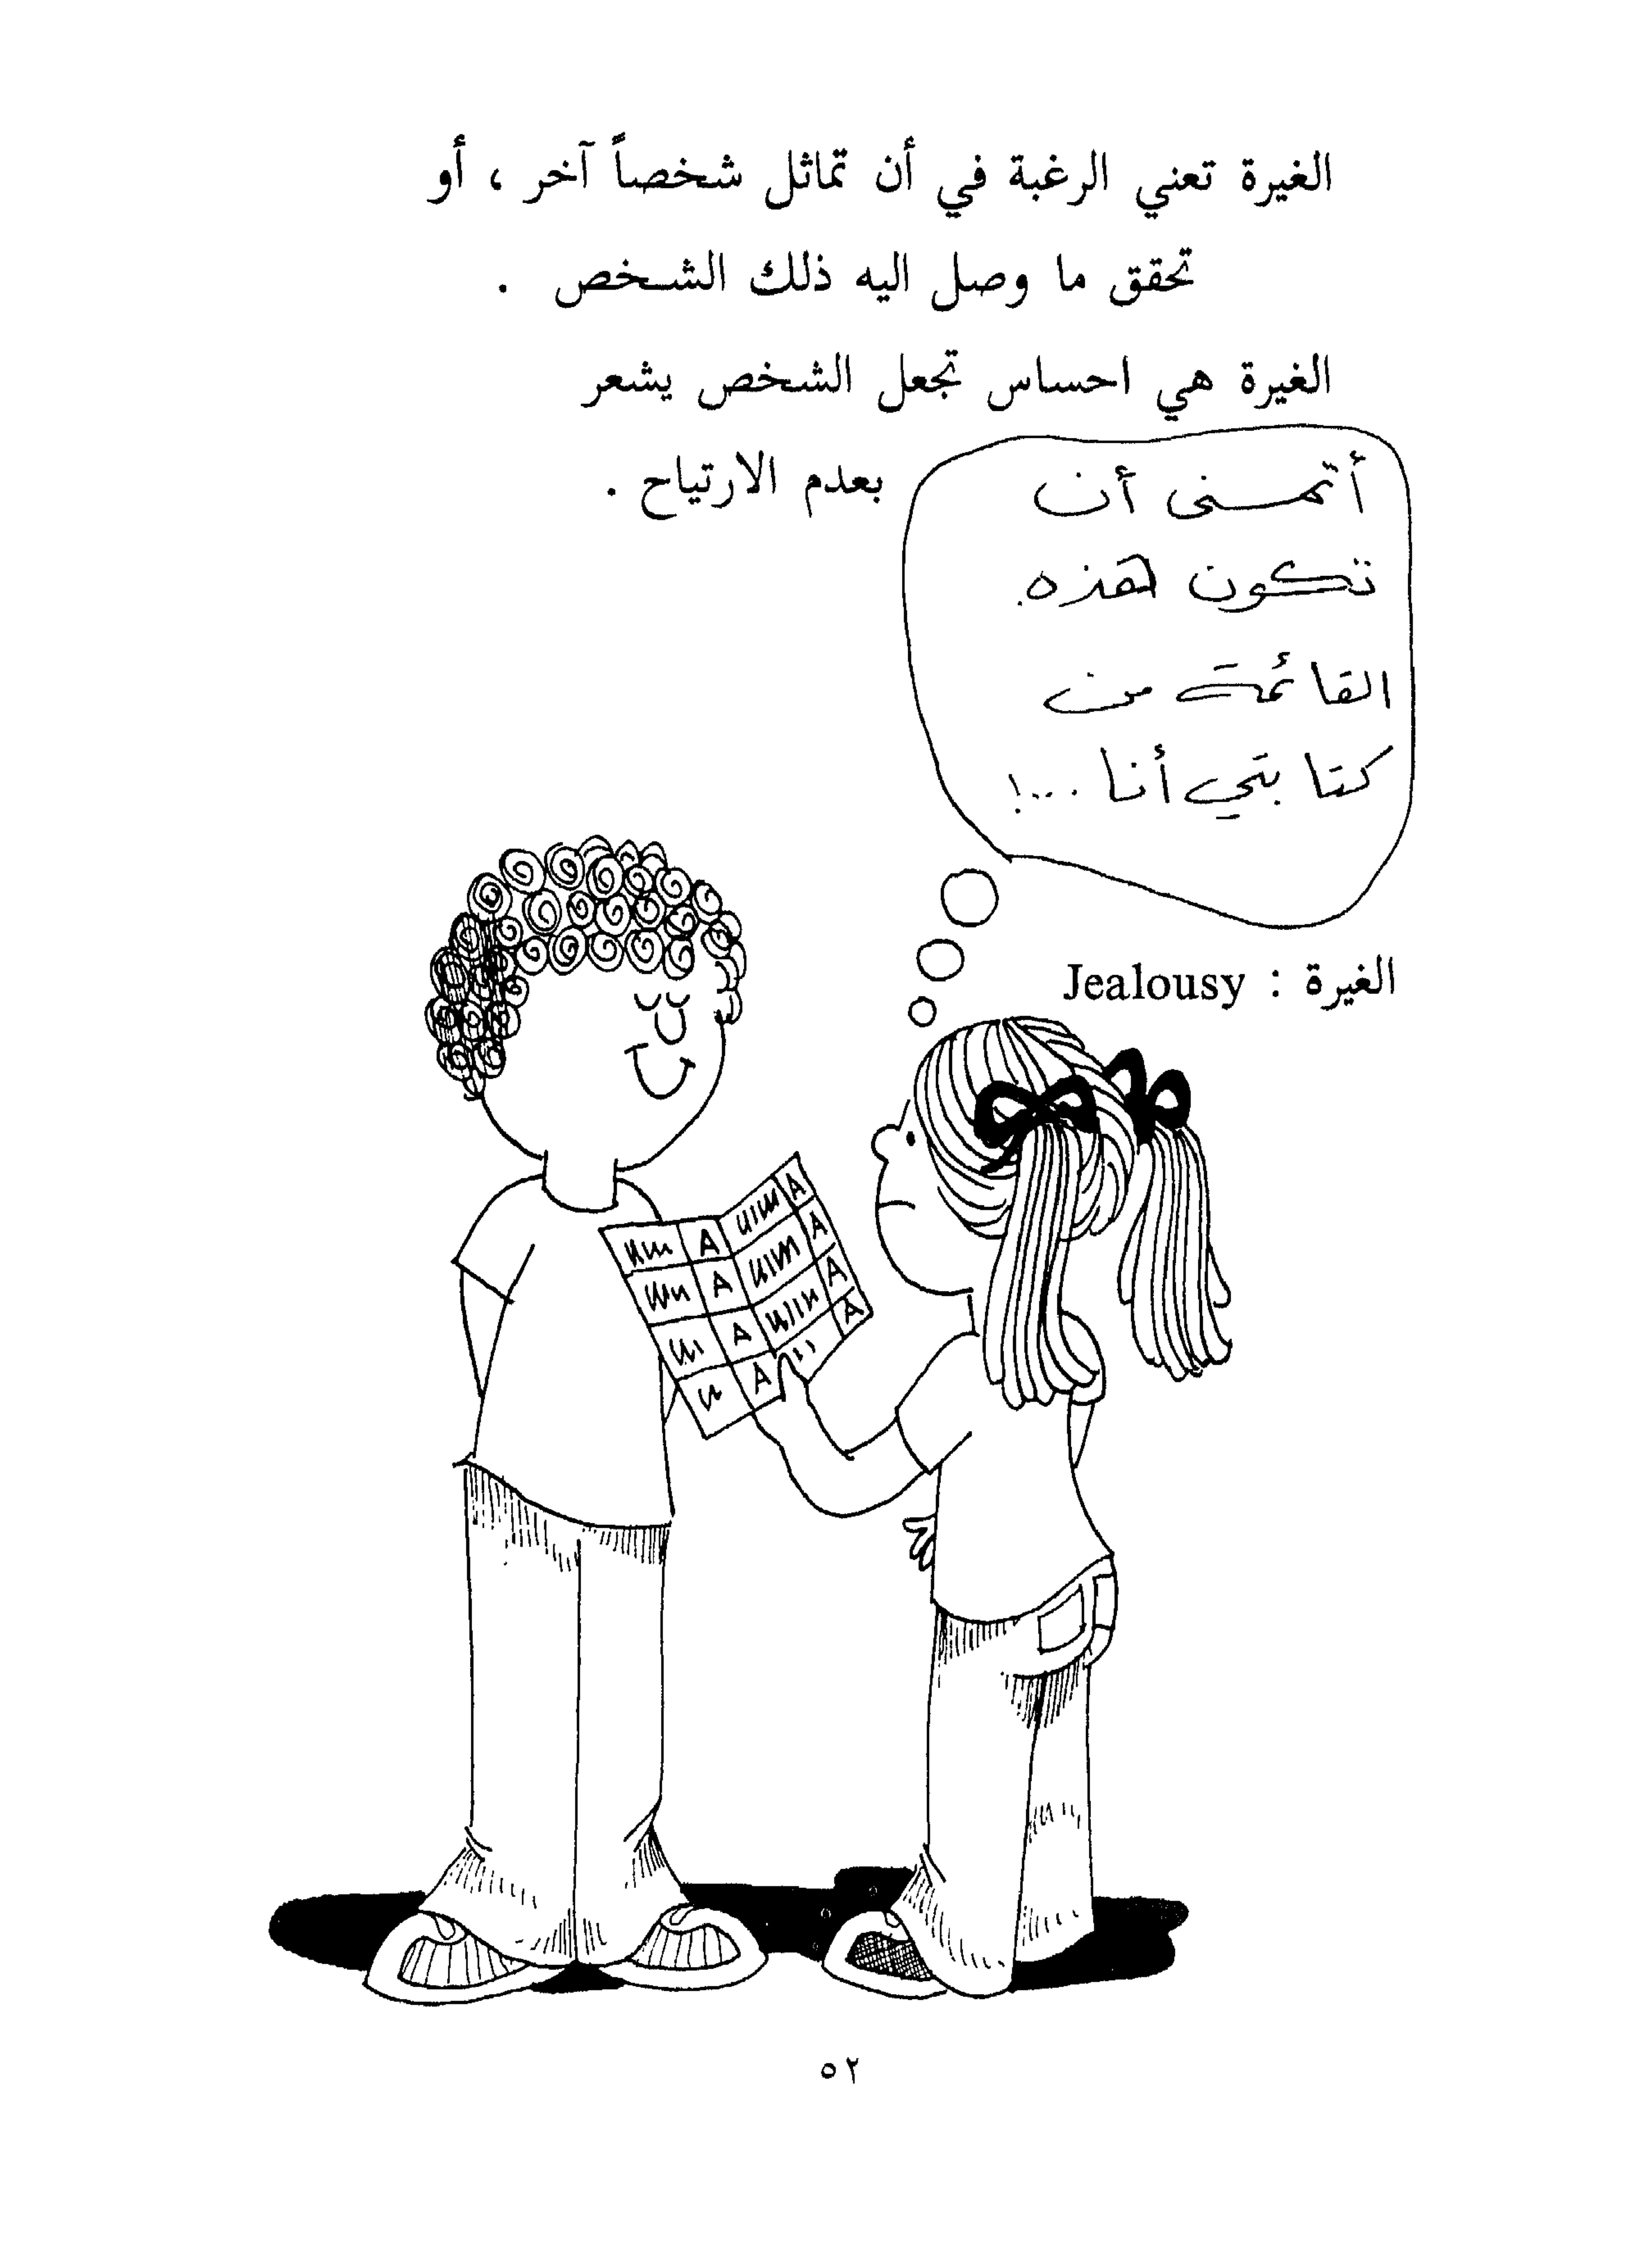 الغيرة تعني الرغبة في أن تماثل شخصاً آخر ، أو
تحقق ما وصل اليه ذلك الشخص .
الغيرة هي احساس تجعل الشخص يشعر
بعدم الارتياح .
أتمنى أن
تكون هذه
القائمة من
كتابتي أنا ...!
الغيرة : Jealousy
A A
A A
A A
A A
٥٢